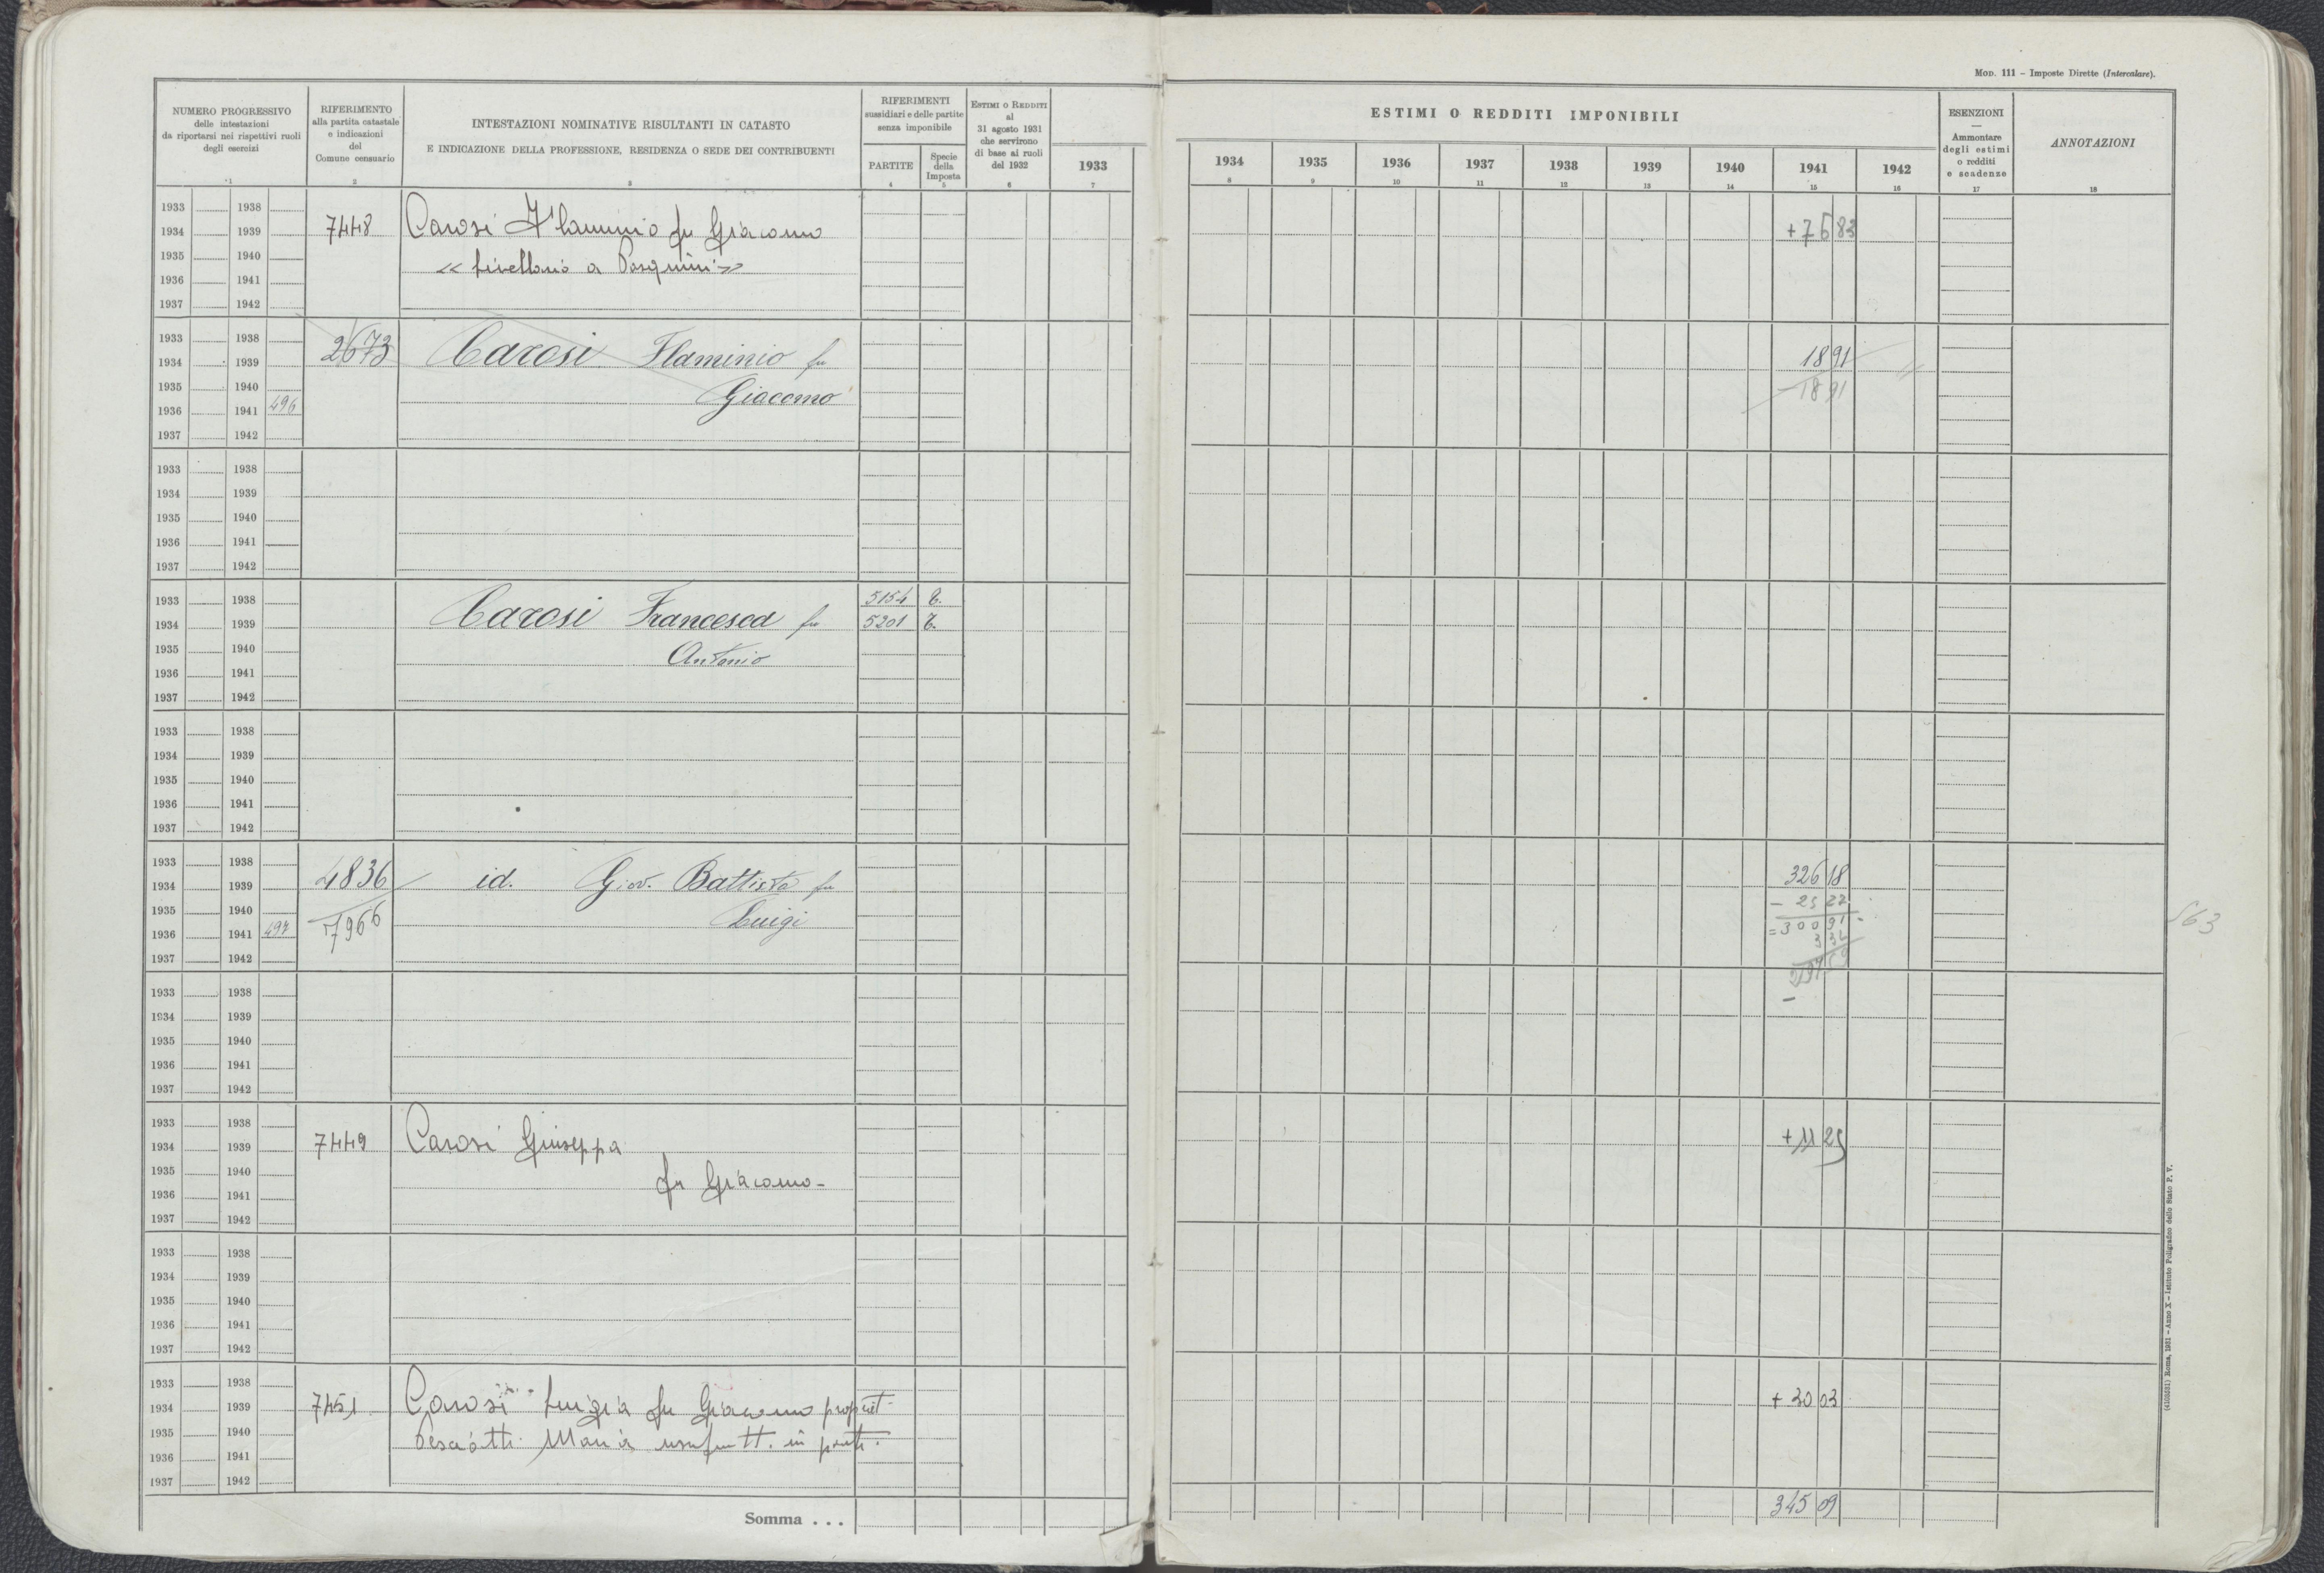 MOD. 111 – Imposte Dirette (Intercalare).
NUMERO PROGRESSIVO
delle intestazioni
da riportarsi nei rispettivi ruoli
degli esercizi
1
RIFERIMENTO
alla partita catastale
e indicazioni
del
Comune censuario
2
INTESTAZIONI NOMINATIVE RISULTANTI IN CATASTO
E INDICAZIONE DELLA PROFESSIONE, RESIDENZA O SEDE DEI CONTRIBUENTI
3
RIFERIMENTI
sussidiari e delle partite
senza imponibile
PARTITE
4
Specie
della
Imposta
5
ESTIMI O REDDITI
al
31 agosto 1931
che servirono
di base ai ruoli
del 1932
6
1933
7
ESTIMI O REDDITI IMPONIBILI
1934 1935 1936 1937 1938 1939 1940 1941 1942
8 9 10 11 12 13 14 15 16
ESENZIONI
—
Ammontare
degli estimi
o redditi
e scadenze
17
ANNOTAZIONI
18
1933 1938
1934 1939 7448 Carosi Flaminio fu Giacomo +76 83
1935 1940 « livellario a Pasquini »
1936 1941
1937 1942
1933 1938
1934 1939 2673 Carosi Flaminio fu 18 91
1935 1940 Giacomo 18 91
1936 1941 496
1937 1942
1933 1938
1934 1939
1935 1940
1936 1941
1937 1942
1933 1938 5154 T.
1934 1939 Carosi Francesca fu 5201 T.
1935 1940 Antonio
1936 1941
1937 1942
1933 1938
1934 1939
1935 1940
1936 1941
1937 1942
1933 1938
1934 1939 4836 id. Giov. Battista fu 326 18
1935 1940 7966 Luigi – 25 27
1936 1941 497 = 300 91
1937 1942
563
1933 1938
1934 1939
1935 1940
1936 1941
1937 1942
1933 1938
1934 1939 7449 Carosi Giuseppa +11 25
1935 1940 fu Giacomo –
1936 1941
1937 1942
1933 1938
1934 1939
1935 1940
1936 1941
1937 1942
1933 1938
1934 1939 7451 Carosi Luigia fu Giacomo propriet + 30 03
1935 1940 Maria usufrutt. in parte.
1936 1941
1937 1942
Somma . . . 345 09
(4105031) Roma, 1931 – Anno X – Istituto Poligrafico dello Stato P. V.